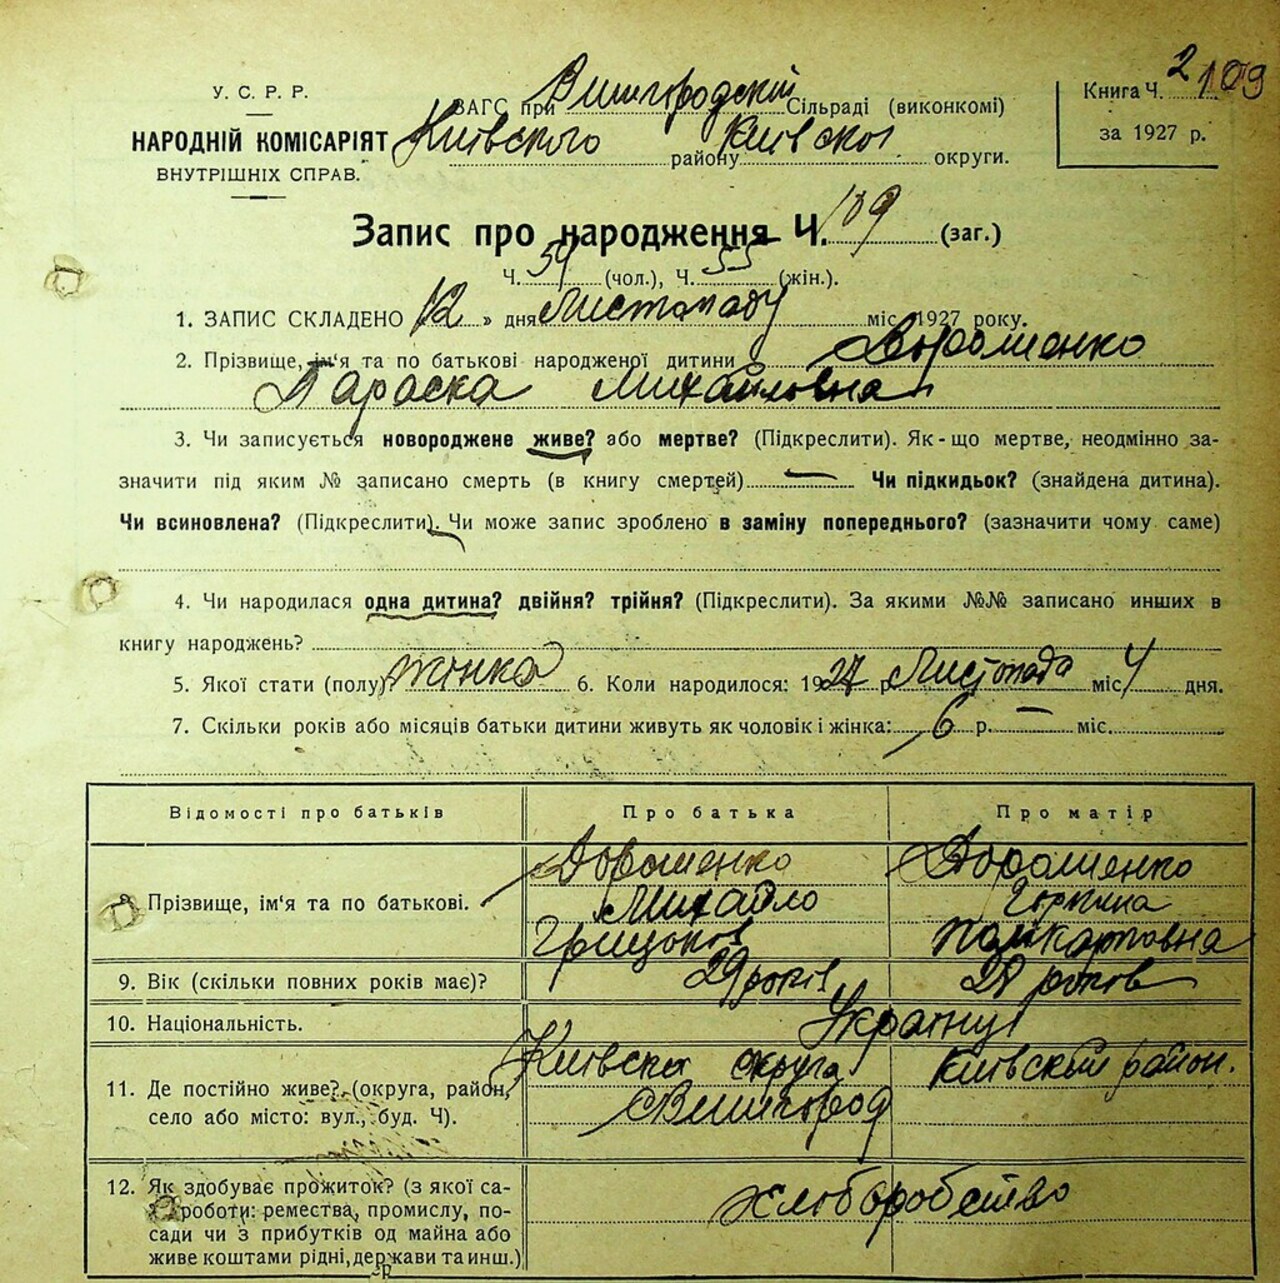 2 109
У. С. Р. Р.
НАРОДНІЙ КОМІСАРІЯТ
ВНУТРІШНІХ СПРАВ.
ЗАГС при Вишгородскій Сільраді (виконкомі)
Київского району Київскої округи.
Книга Ч.
за 1927 р.
Запис про народження Ч. 109 (заг.)
Ч. 54 (чол.), Ч. 55 (жін.).
1. ЗАПИС СКЛАДЕНО «12» дня Листопаду міс 1927 року.
2. Прізвище, ім'я та по батькові народженої дитини Дорошенко
Параска Михайловна
3. Чи записується новороджене живе? або мертве? (Підкреслити). Як-що мертве, неодмінно за-
значити під яким № записано смерть (в книгу смертей) — Чи підкидьок? (знайдена дитина).
Чи всиновлена? (Підкреслити). Чи може запис зроблено в заміну попереднього? (зазначити чому саме)
4. Чи народилася одна дитина? двійня? трійня? (Підкреслити). За якими №№ записано инших в
книгу народжень?
5. Якої стати (полу) жінка 6. Коли народилося: 1927 р Листопада міс 4 дня.
7. Скільки років або місяців батьки дитини живуть як чоловік і жінка: 6 р. — міс.
Відомості про батьків Про батька Про матір
8. Прізвище, ім'я та по батькові.
Дорошенко Михайло Грицьков
Дорошенко Горпина Полікарповна
9. Вік (скільки повних років має)? 29 років 28 років
10. Національність. Українці
11. Де постійно живе? (округа, район,
село або місто: вул., буд. Ч).
Київска округа Київский район.
Вишгород
12. Як здобуває прожиток? (з якої са-
роботи: ремества, промислу, по-
сади чи з прибутків од майна або
живе коштами рідні, держави та инш.)
хлюборобство